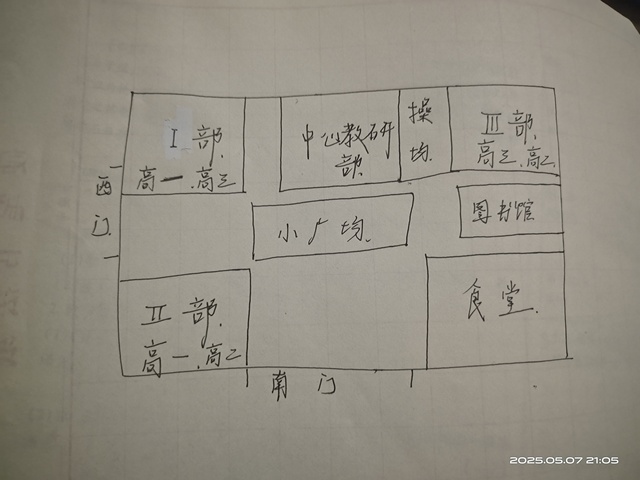 I部.
高一.高三
中心教研
部.
操
均.
III部.
高三.高二
西
门.
小广均.
图书馆
II部.
高一.高二
食堂.
南门
2025.05.07 21:05